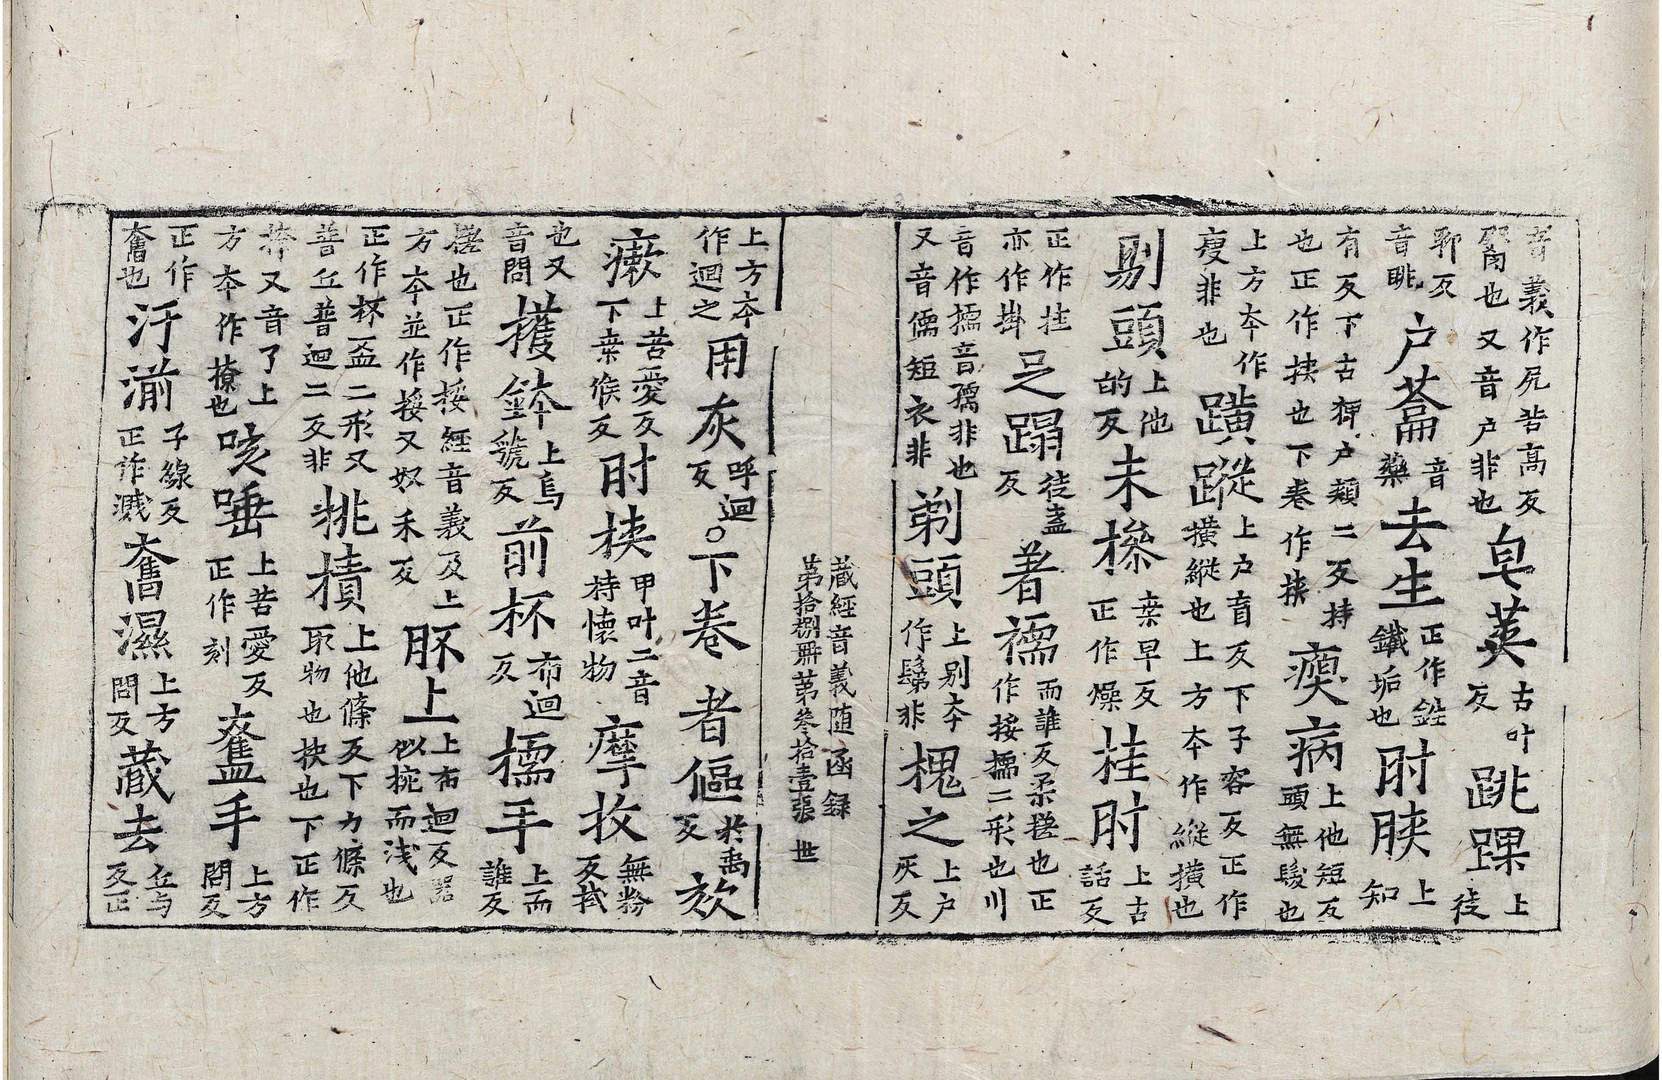 音義作尻苦高反
㞘也又音户非也
皂莢古叶反
跳踝上徒
聊反
音眺
户蘥音藥
去生正作鉎鐵垢也
肘胅上知
有反下古狎户頰二反持
也正作挾也下卷作挾
瘓病上他短反頭無髮也
上方夲作
瘦非也
蹎蹤上户盲反下子容反正作
横縱也上方夲作縱橫也
剔頭上他的反
未㯕桒早反正作燥
挂肘上古話反
正作挂
亦作掛
足蹋徒盍反
著襦而誰反柔㨙也正
作挼擩二形也川
音作擩音孺非也
又音儒短衣非
剃頭上别夲作髴非
槐之上户灰反
藏經音義随函録
第拾捌冊第叄拾壹張 世
上方夲
作迴之
用灰呼迴反
下卷
者傴扵禹反
欬
瘶上苦愛反
下桒候反
肘挾甲叶二音
持懷物
摩抆無粉
反拭
也又
音問
擭鉢上烏
虢反
前杯布迴反
擩手上而
誰反
㨙也正作挼經音義及上
方夲並作挼又奴禾反
肧上上布迴反器
似椀而浅也
正作杯盃二形又
普丘普迴二反非
挑擿上他條反下力條反
取物也抉也下正作
撩又音了上
方夲作撩也
咳唾上苦愛反
正作刻
盦手上方
問反
正作
奮也
汙湔子線反
正作濺
奮濕上方
問反
藏去丘与
反正